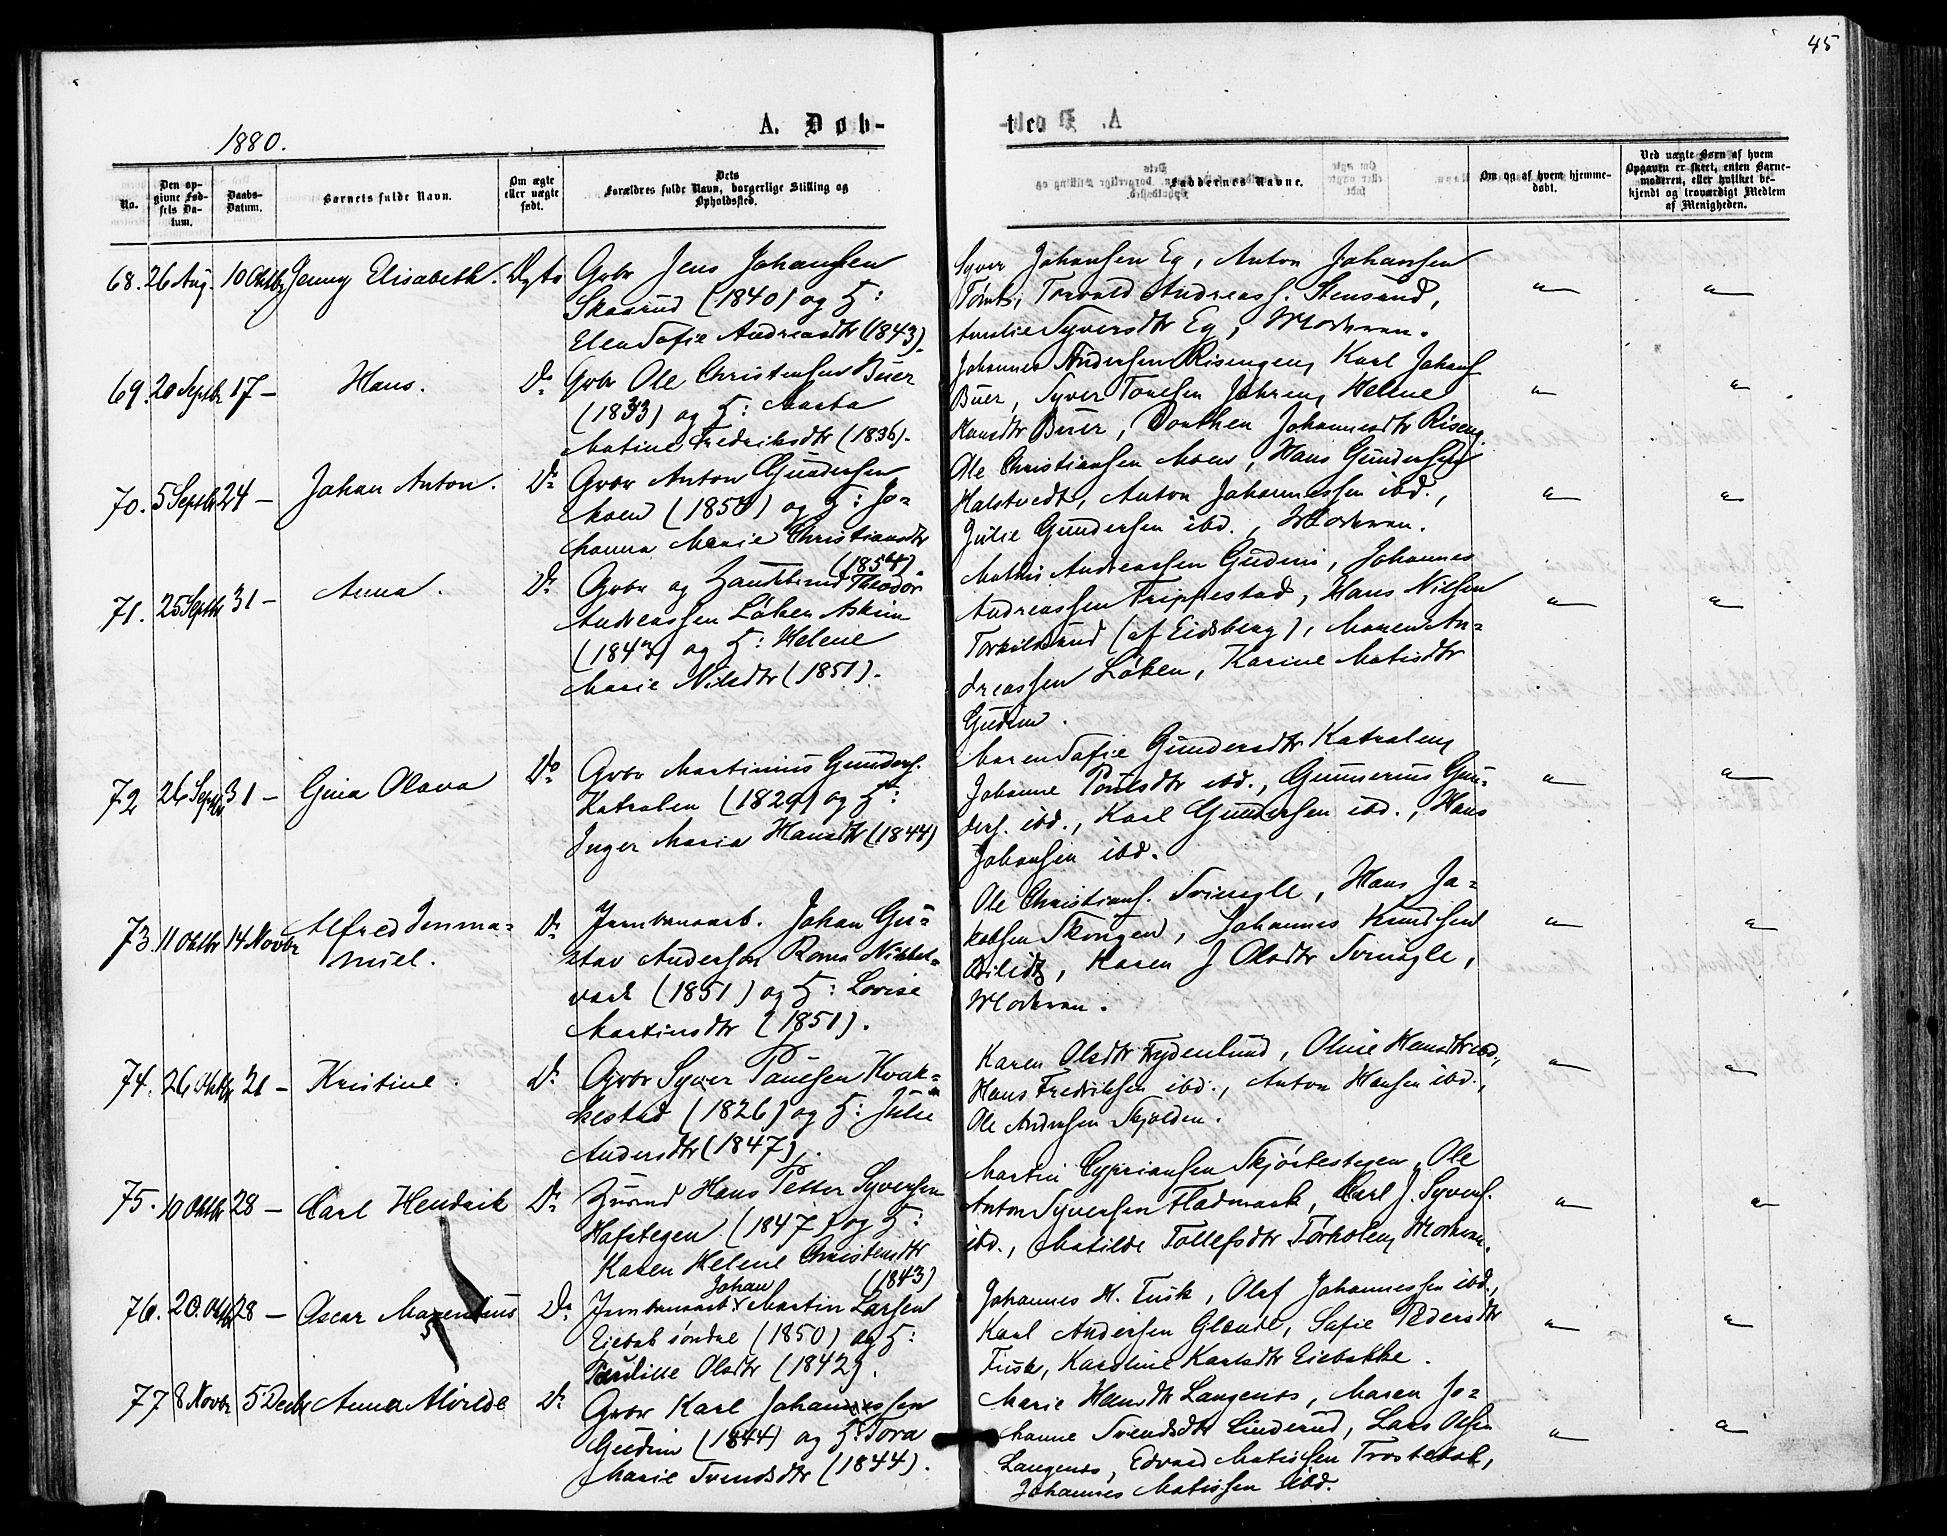 45
1880.
A. Døb-
te.
No.
Den opgivne Fødsels Datum.
Daabs-Datum.
Barnets fulde Navn.
Om ægte eller uægte født.
Dets Forældres fulde Navn, borgerlige Stilling og Opholdssted.
Faddernes Navne.
Om og af hvem hjemmedøbt.
Ved uægte Børn af hvem Opgaven er skeet, enten Barnemoderen, eller hvilket bekjendt og troværdigt Medlem af Menigheden.
68. 26 Aug. 10 Oktbr Jenny Elisabeth. Ægte
Gbr Jens Johansen
Skaarud (1840) og H:
Elen Sofie Andreasdtr (1843).
Syver Johansen Eg, Anton Johansen
Tømt, Torvald Andreass. Stensrud,
Amalie Syversdtr Eg, Moderen.
69. 20 Septbr 17 – Hans. Do
Gbr Ole Christensen Buer
(1833) og H: Marta
Matine Fredriksdtr (1836).
Johannes Andersen Risengen, Karl Johans.
Buer, Syver Tonesen Jahren, Helene
Hansdtr Buer, Dorthea Johannesdtr Riseng.
70. 5 Septbr 24 – Johan Anton. Do
Gbr Anton Gundersen
Moen (1850) og H: Jo-
hanna Marie Christiansdtr
(1854).
Ole Christiansen Moen, Hans Gundersen
Halstvedt, Anton Johannessen ibd.,
Julie Gundersen ibd., Moderen.
71. 25 Septbr 31 – Anna. Do
Gbr og Handelsmd Theodor
Andreassen Løken Askim
(1843) og H: Helene
Marie Nilsdtr (1851).
Mathis Andreassen Gudim, Johannes
Andreassen Trippestad, Hans Nilsen
Torkilsrud (af Eidsberg), Maren An-
dreassen Løken, Karine Matisdtr
Gudim.
72 26 Septbr 31 – Gina Olava Do
Gbr Martinius Gunders.
Katralen (1829) og H:
Inger Maria Hansdtr (1844)
Maren Sofie Gundersdtr Katralen,
Johanne Poulsdtr ibd., Gunnerius Gun-
ders. ibd., Karl Gundersen ibd., Hans
Johansen ibd.
73. 11 Oktbr 14 Novbr Alfred Imma- Do
nuel.
Jernbanearb. Johan Gu-
stav Andersen Rom Nikkel-
verk (1851) og H: Lovise
Martinsdtr (1851).
Ole Christians. Svinegle, Hans Ja-
kobsen Skougen, Johannes Knudsen
Bilidt, Karen J Olsdtr Svinegle,
Moderen.
74. 26 Oktbr 21 – Kristine. Do
Gbr Syver Paulsen Kvak-
kestad (1826) og H: Julie
Andersdtr (1847).
Karen Olsdtr Frydenlund, Oline Hansdtr ibd.,
Hans Fredriksen ibd., Anton Hansen ibd.,
Ole Andersen Skjolden.
75. 10 Oktbr 28 – Carl Hendrik Do
Husmd Hans Petter Syversen
Hafstegen (1847) og H:
Karen Helene Christensdtr
(1843)
Martin Cypriansen Skjørtestegen, Ole
Anton Syversen Fladmark, Carl J. Syvers.
ibd., Matilde Tollefsdtr Torholen, Moderen.
76. 20. Oktbr 28 – Oscar Marentius Do
Johan
Jernbanearb Martin Larsen
Eiebak søndre (1850) og H:
Paulille Olsdtr (1842).
Johannes H. Fusk, Olaf Johannessen ibd.,
Karl Andersen Glende, Sofie Pedersdtr
Fusk, Karoline Karlsdtr Eiebakke.
77 8 Novbr 5 Decbr Anna Alvilde Do
Gbr Karl Johanssen
Gudim (1844) og H: Tora
Marie Svendsdtr (1844).
Marie Hansdtr Langenes, Maren Jo-
hanne Svendsdtr Linderud, Lars Olsen
Langenes, Edvard Matissen Trostedal,
Johannes Matissen ibd.